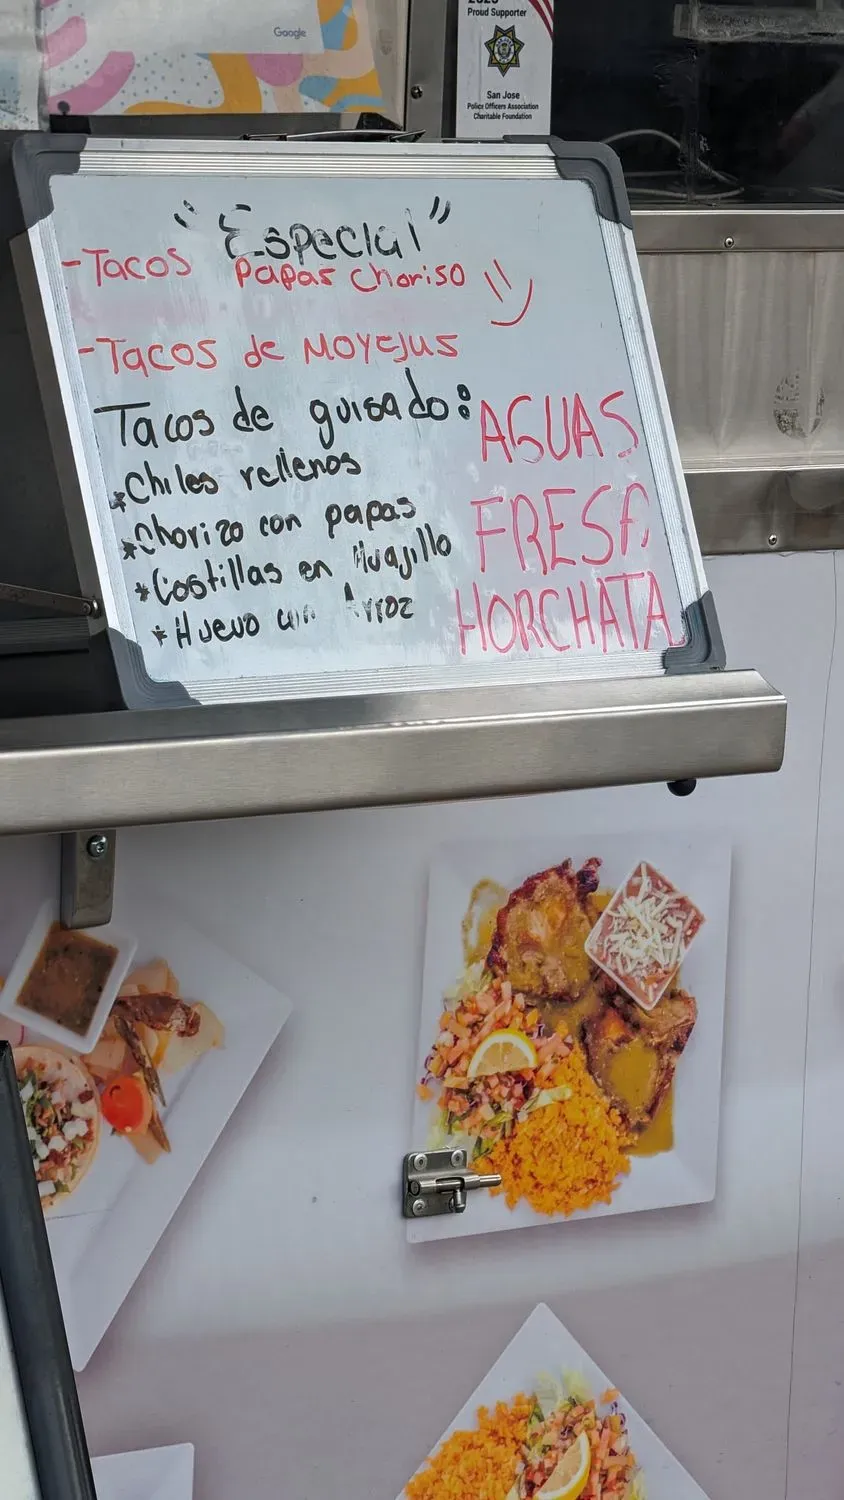 Google
2025
Proud Supporter
San Jose
Police Officers Association
Charitable Foundation
"Especial"
-Tacos Papas Choriso
-Tacos de Moyejus
Tacos de guisado:
*Chiles rellenos
*Chorizo con papas
*Costillas en Huajillo
*Huevo con Arroz
AGUAS
FRESA
HORCHATA